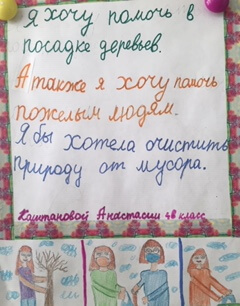 Я хочу помочь в
посадке деревьев.
А также я хочу помочь
пожелым людям.
Я бы хотела очистить
природу от мусора.
Каштановой Анастасии 4в класс